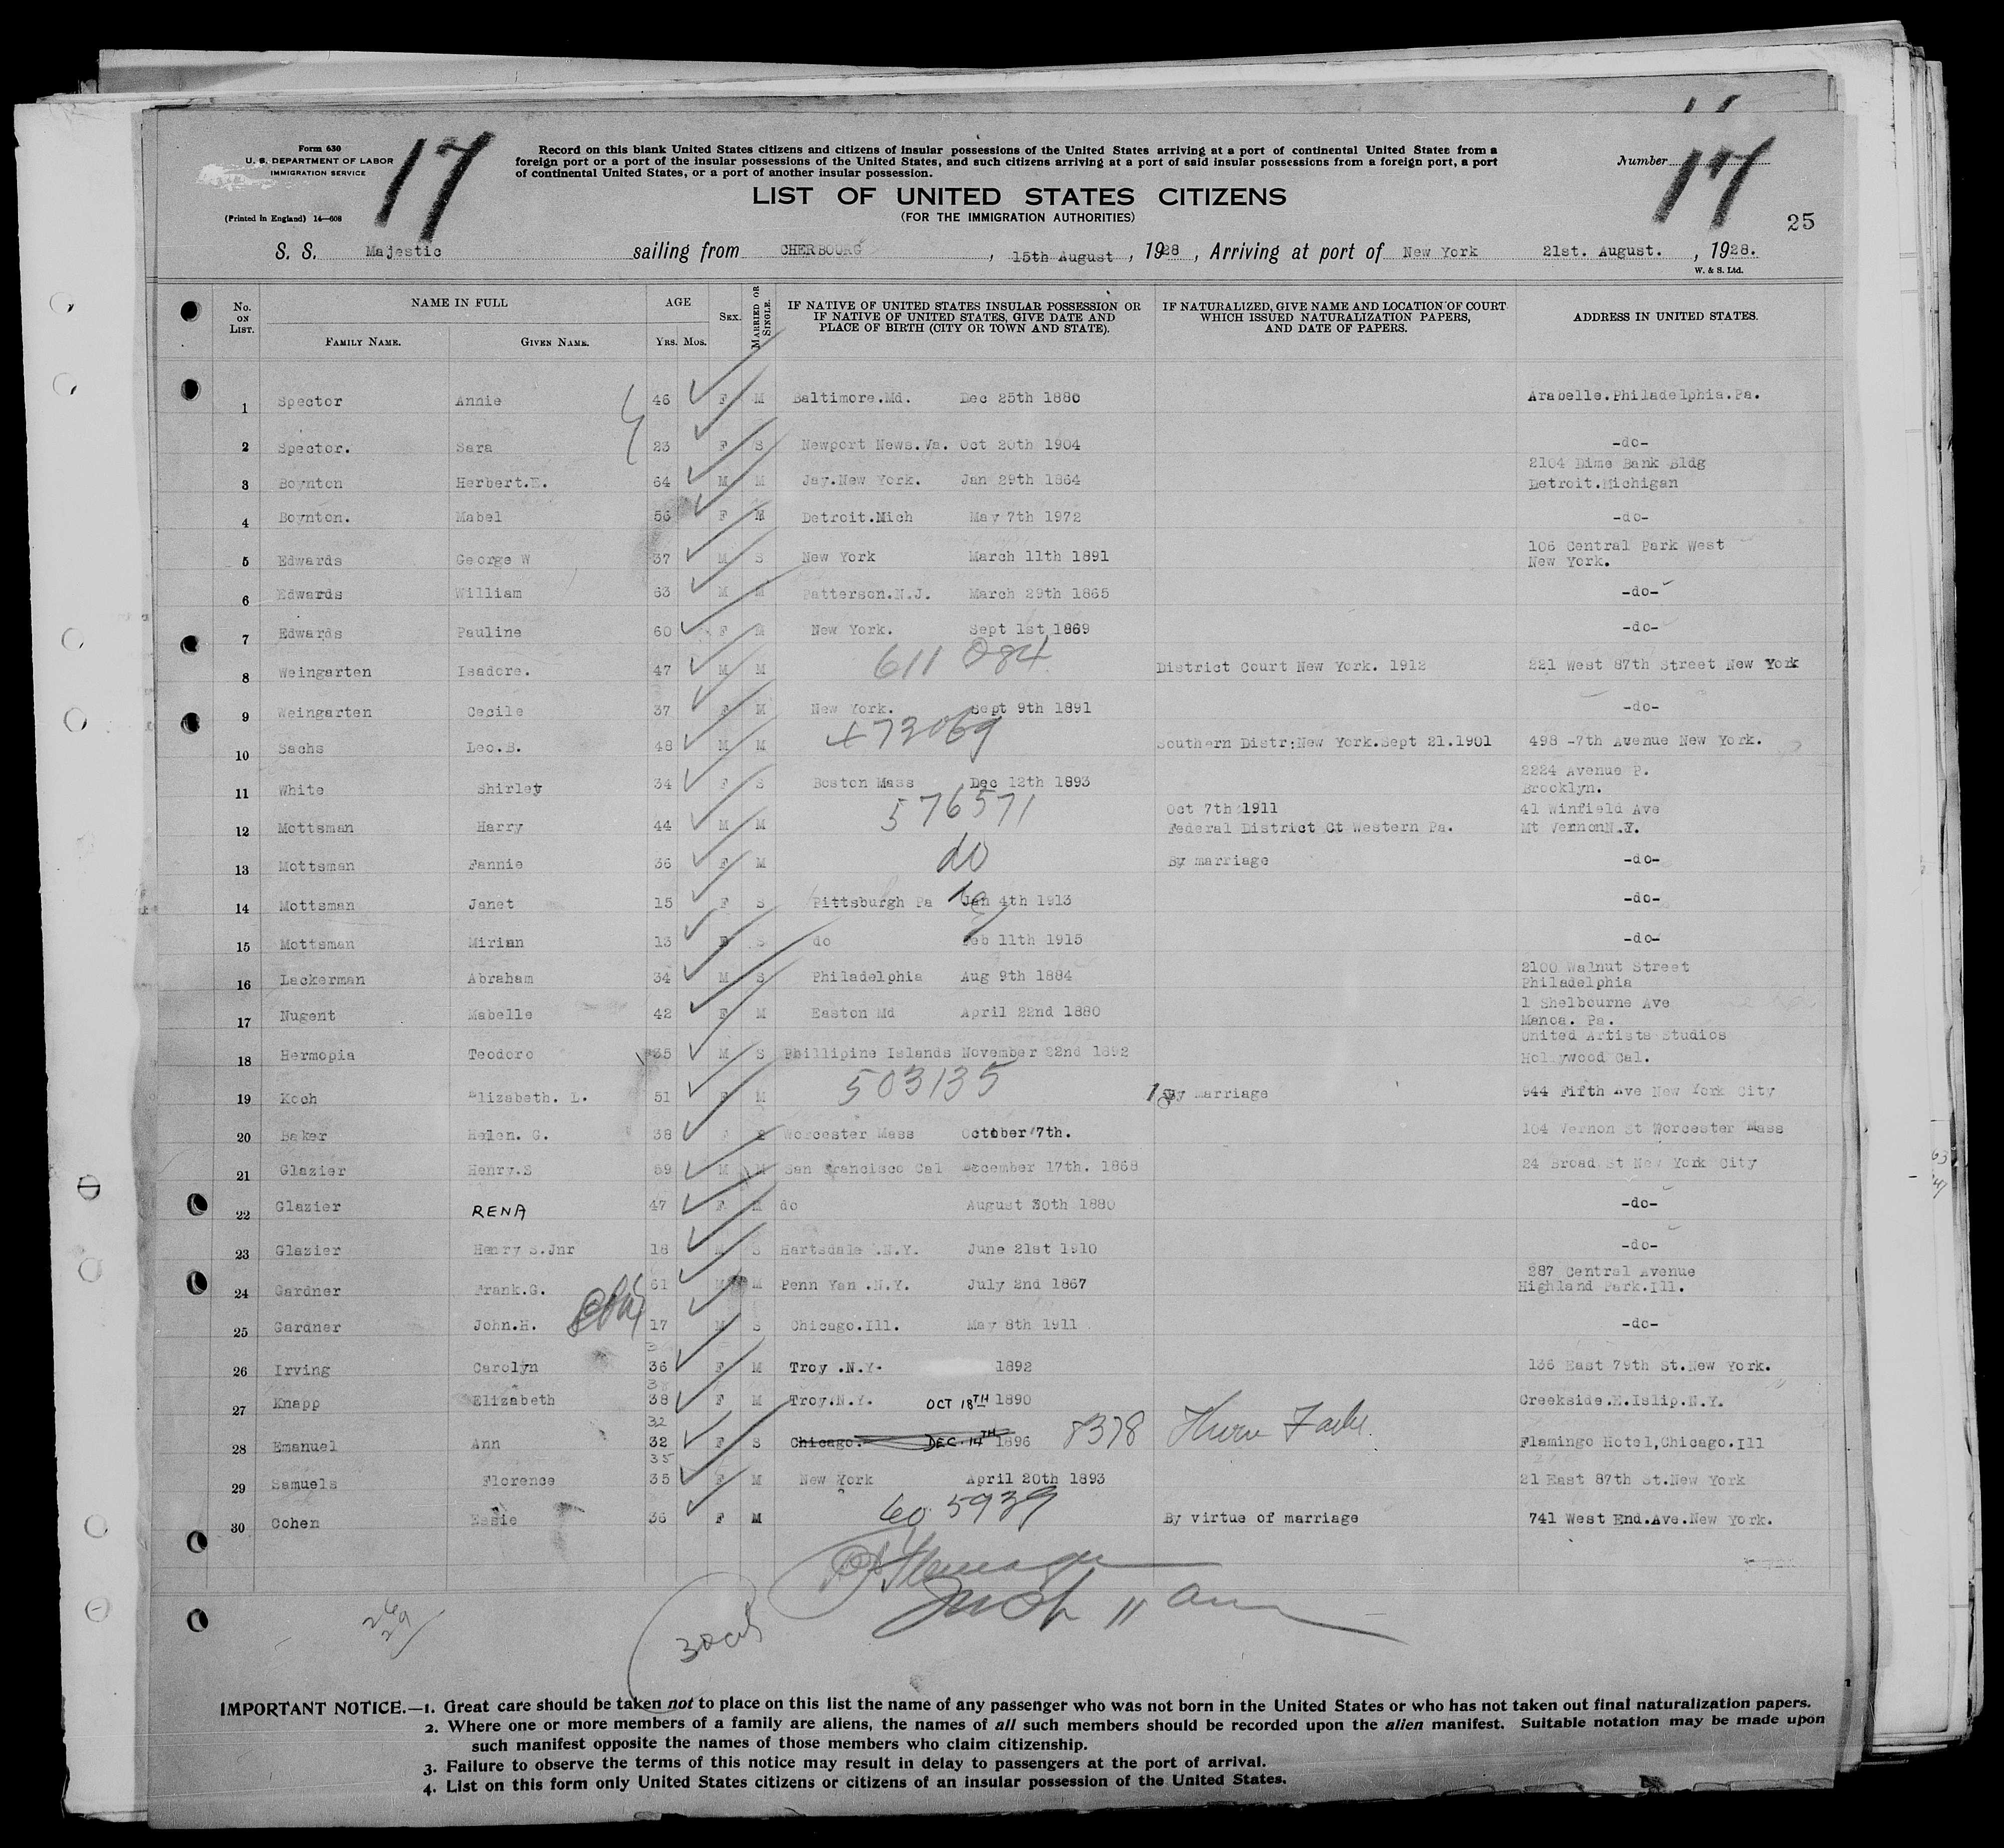 17
Form 630
U. S. DEPARTMENT OF LABOR
IMMIGRATION SERVICE
(Printed in England) 14—608
Record on this blank United States citizens and citizens of insular possessions of the United States arriving at a port of continental United States from a
foreign port or a port of the insular possessions of the United States, and such citizens arriving at a port of said insular possessions from a foreign port, a port
of continental United States, or a port of another insular possession.
Number 17
LIST OF UNITED STATES CITIZENS
(FOR THE IMMIGRATION AUTHORITIES)
25
S. S. Majestic sailing from CHERBOURG, 15th August, 1928, Arriving at port of New York 21st. August., 1928.
W. & S. Ltd.
No. ON LIST. NAME IN FULL AGE SEX. MARRIED OR SINGLE. IF NATIVE OF UNITED STATES INSULAR POSSESSION OR IF NATIVE OF UNITED STATES, GIVE DATE AND PLACE OF BIRTH (CITY OR TOWN AND STATE). IF NATURALIZED, GIVE NAME AND LOCATION OF COURT WHICH ISSUED NATURALIZATION PAPERS, AND DATE OF PAPERS. ADDRESS IN UNITED STATES.
FAMILY NAME. GIVEN NAME. YRS. MOS.
1 Spector Annie 46 F M Baltimore.Md. Dec 25th 1880 Arabelle.Philadelphia.Pa.
2 Spector. Sara 23 F S Newport News.Va. Oct 20th 1904 -do-
3 Boynton Herbert.E. 64 M M Jay.New York. Jan 29th 1864 2104 Dime Bank Bldg Detroit.Michigan
4 Boynton. Mabel 56 F M Detroit.Mich May 7th 1972 -do-
5 Edwards George W 37 M S New York March 11th 1891 106 Central Park West New York.
6 Edwards William 63 M M Patterson.N.J. March 29th 1865 -do-
7 Edwards Pauline 60 F M New York. Sept 1st 1869 -do-
8 Weingarten Isadore. 47 M M 611 084 District Court New York. 1912 221 West 87th Street New York
9 Weingarten Cecile 37 F M New York. Sept 9th 1891 -do-
10 Sachs Leo.B. 48 M M 473069 Southern Distr:New York.Sept 21.1901 498 -7th Avenue New York.
11 White Shirley 34 F S Boston Mass Dec 12th 1893 2224 Avenue P. Brooklyn.
12 Mottsman Harry 44 M M 576571 Oct 7th 1911 Federal District Ct Western Pa. 41 Winfield Ave Mt VernonN.Y.
13 Mottsman Fannie 36 F M do By marriage -do-
14 Mottsman Janet 15 F S Pittsburgh Pa Jan 4th 1913 -do-
15 Mottsman Mirian 13 F S do Feb 11th 1915 -do-
16 Lackerman Abraham 34 M S Philadelphia Aug 9th 1884 2100 Walnut Street Philadelphia
17 Nugent Mabelle 42 F M Easton Md April 22nd 1880 1 Shelbourne Ave Manoa. Pa.
18 Hermopia Teodoro 35 M S Phillipine Islands November 22nd 1892 United Artists Studios Hollywood Cal.
19 Koch Elizabeth. L. 51 F M 503135 By marriage 944 Fifth Ave New York City
20 Baker Helen. G. 38 F S Worcester Mass October 7th. 104 Vernon St Worcester Mass
21 Glazier Henry.S 59 M M San Francisco Cal December 17th. 1868 24 Broad St New York City
22 Glazier RENA 47 F M do August 30th 1880 -do-
23 Glazier Henry S.Jnr 18 M S Hartsdale .N.Y. June 21st 1910 -do-
24 Gardner Frank.G. 61 M M Penn Yan .N.Y. July 2nd 1867 287 Central Avenue Highland Park.Ill.
25 Gardner John.H. 17 M S Chicago.Ill. May 8th 1911 -do-
26 Irving Carolyn 36 F M Troy .N.Y. 1892 136 East 79th St.New York.
27 Knapp Elizabeth 38 F M Troy.N.Y. OCT 18TH 1890 Creekside.E.Islip.N.Y.
28 Emanuel Ann 32 32 F S Chicago. DEC. 14TH 1896 8378 Flamingo Hotel,Chicago.Ill
29 Samuels Florence 35 35 F M New York April 20th 1893 21 East 87th St.New York
30 Cohen Essie 36 F M 60 5939 By virtue of marriage 741 West End.Ave.New York.
IMPORTANT NOTICE.—1. Great care should be taken not to place on this list the name of any passenger who was not born in the United States or who has not taken out final naturalization papers.
2. Where one or more members of a family are aliens, the names of all such members should be recorded upon the alien manifest. Suitable notation may be made upon
such manifest opposite the names of those members who claim citizenship.
3. Failure to observe the terms of this notice may result in delay to passengers at the port of arrival.
4. List on this form only United States citizens or citizens of an insular possession of the United States.